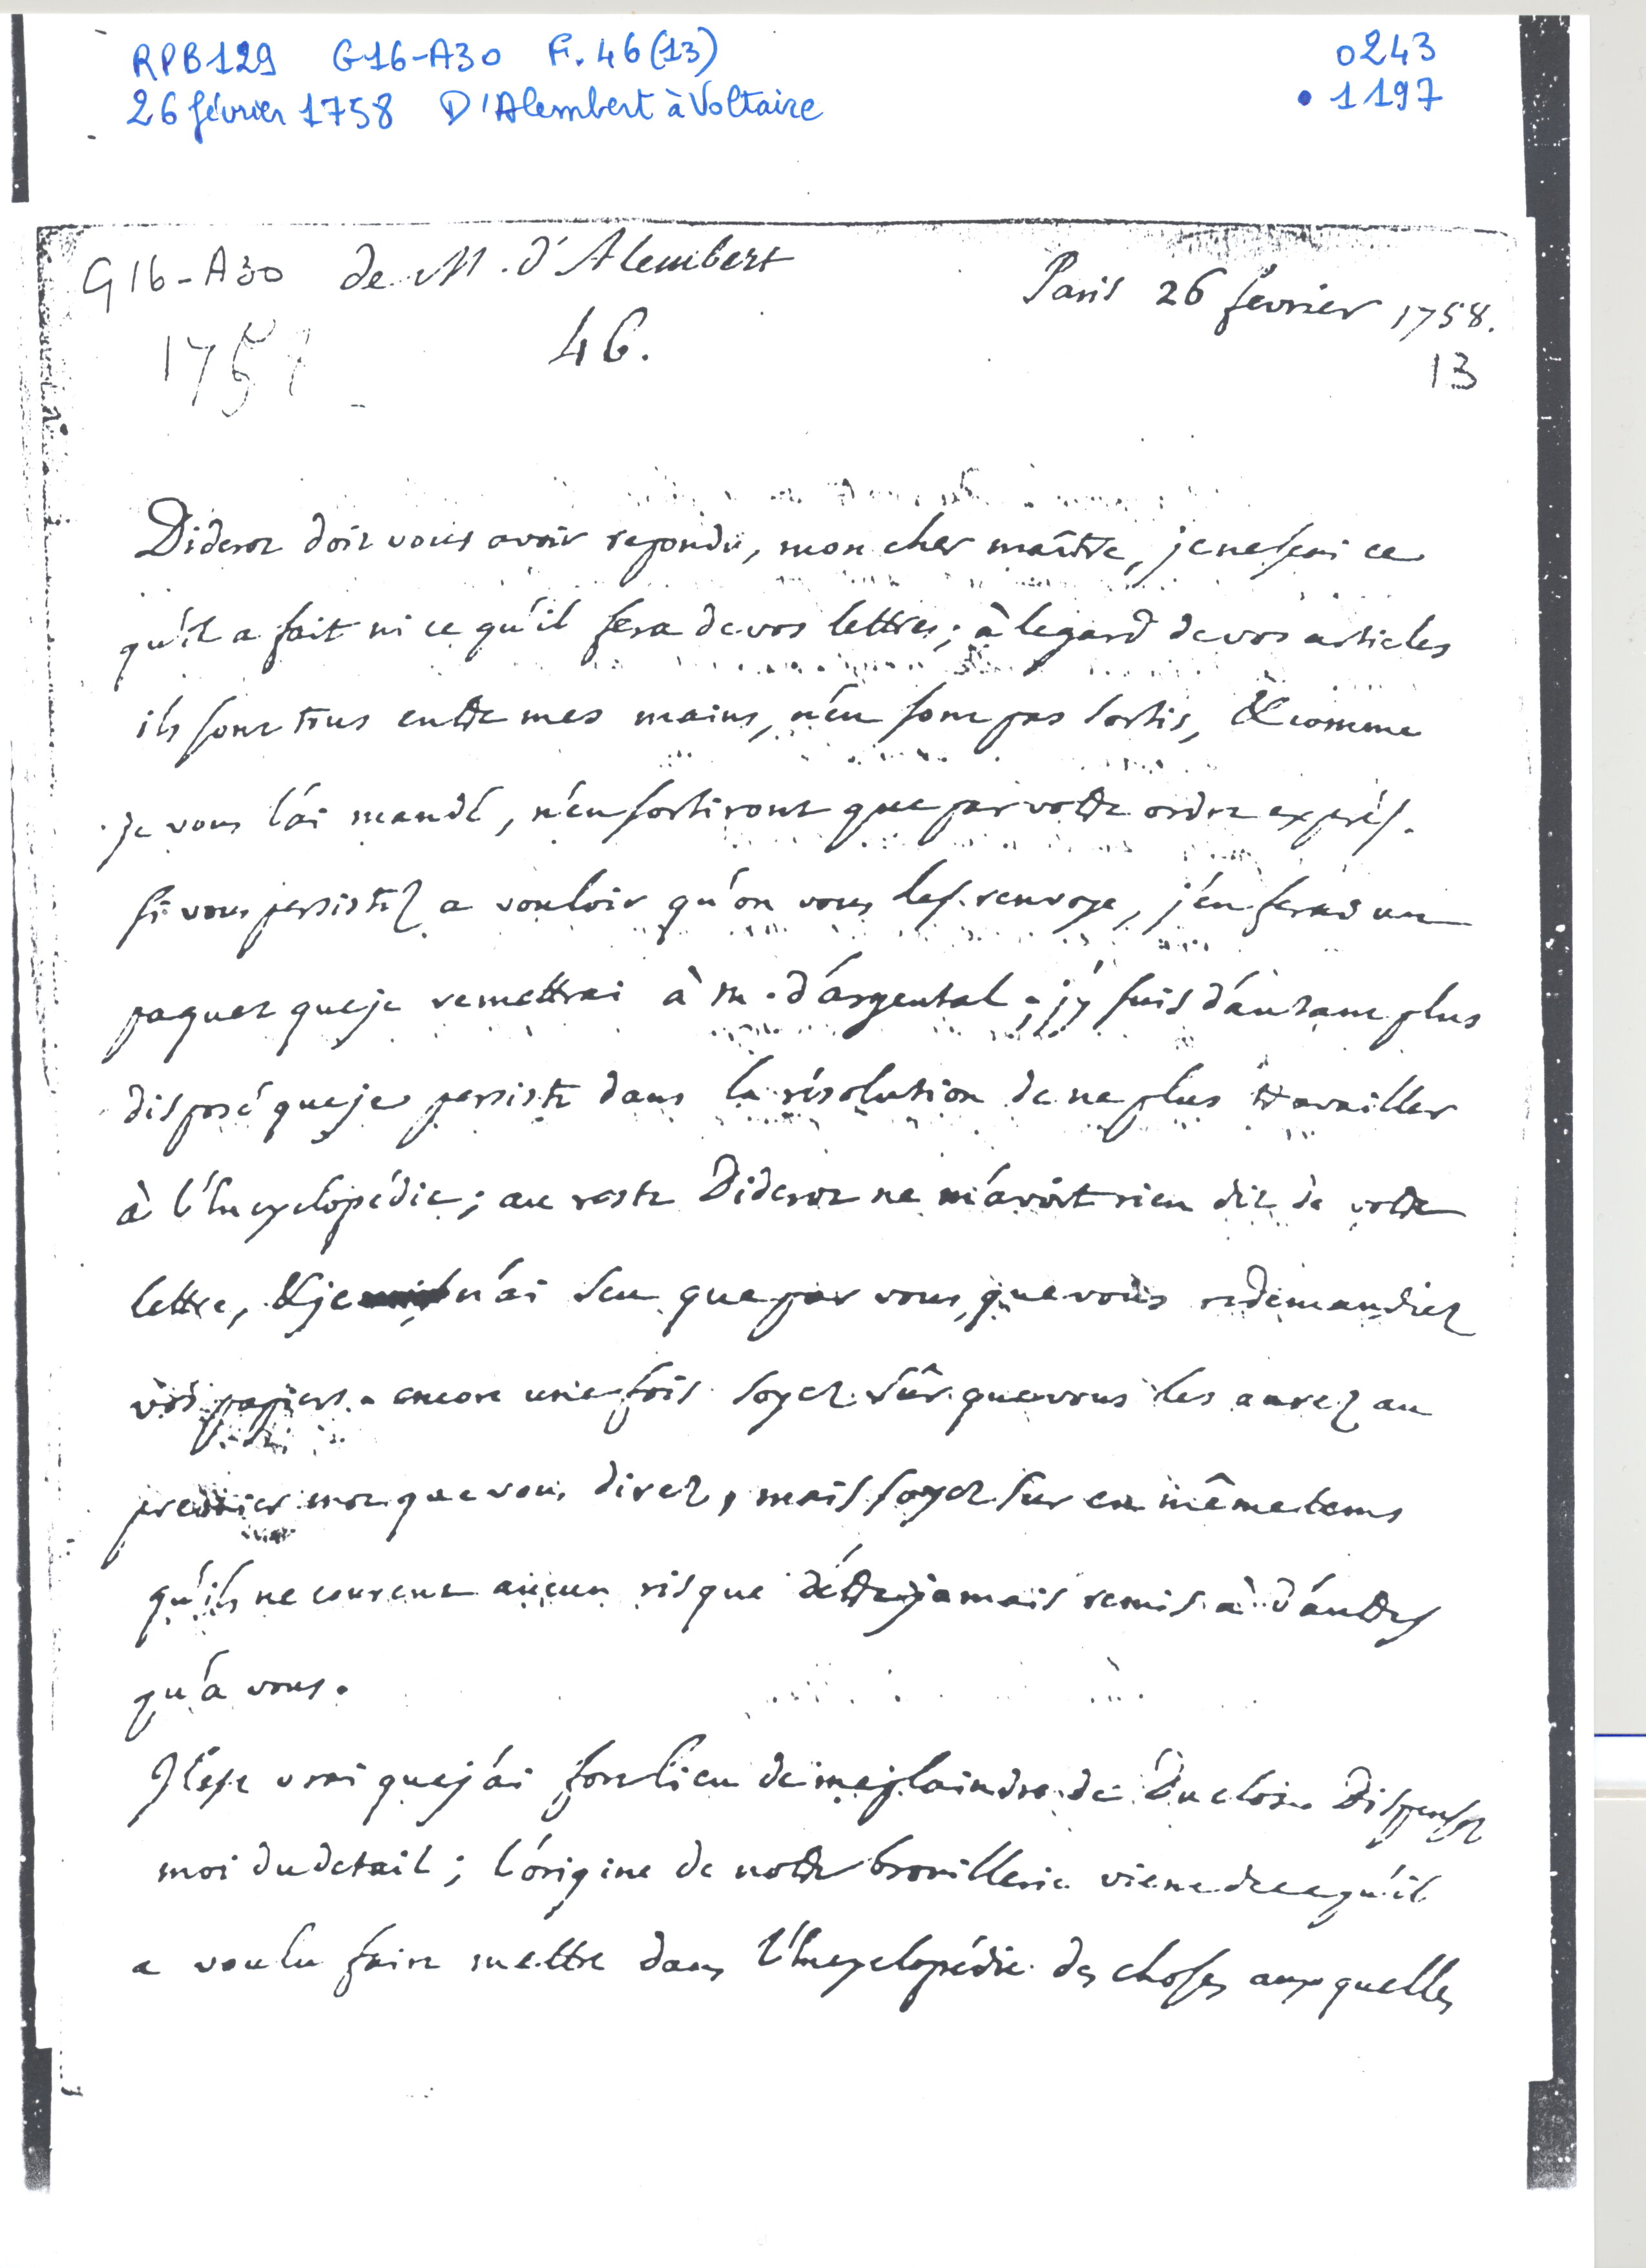 RPB129 G16-A30 Fi. 46(13) 0243
26 février 1758 D'Alembert à Voltaire • 1197
G16-A30 de M. d'Alembert Paris 26 fevrier 1758.
46. 13
Diderot doit vous avoir repondu, mon cher maître, je ne sai ce
qu'il a fait ni ce qu'il fera de vos lettres; à legard de vos articles
ils sont tous entre mes mains, n'en sont pas sortis, & comme
je vous l'ai mandé, n'en sortiront que par votre ordre exprès.
si vous persistez a vouloir qu'on vous les renvoye, j'en ferai un
paquet que je remettrai à m. d'argental; j'y suis d'autant plus
disposé que je persiste dans la résolution de ne plus travailler
à l'Encyclopédie; au reste Diderot ne m'avoit rien dit de votre
lettre, & je n'ai seu que par vous, que vous redemandiez
vos papiers. encore une fois soyez sûr que vous les aurez au
premier mot que vous direz, mais soyez sur en même tems
qu'ils ne courent aucun risque d'être jamais remis à d'autres
qu'à vous.
Il est vrai que j'ai fort lieu de me plaindre de Duclos. Dispensez
moi du detail; l'origine de notre brouillerie vient de ce qu'il
a voulu faire mettre dans l'Encyclopédie des choses auxquelles